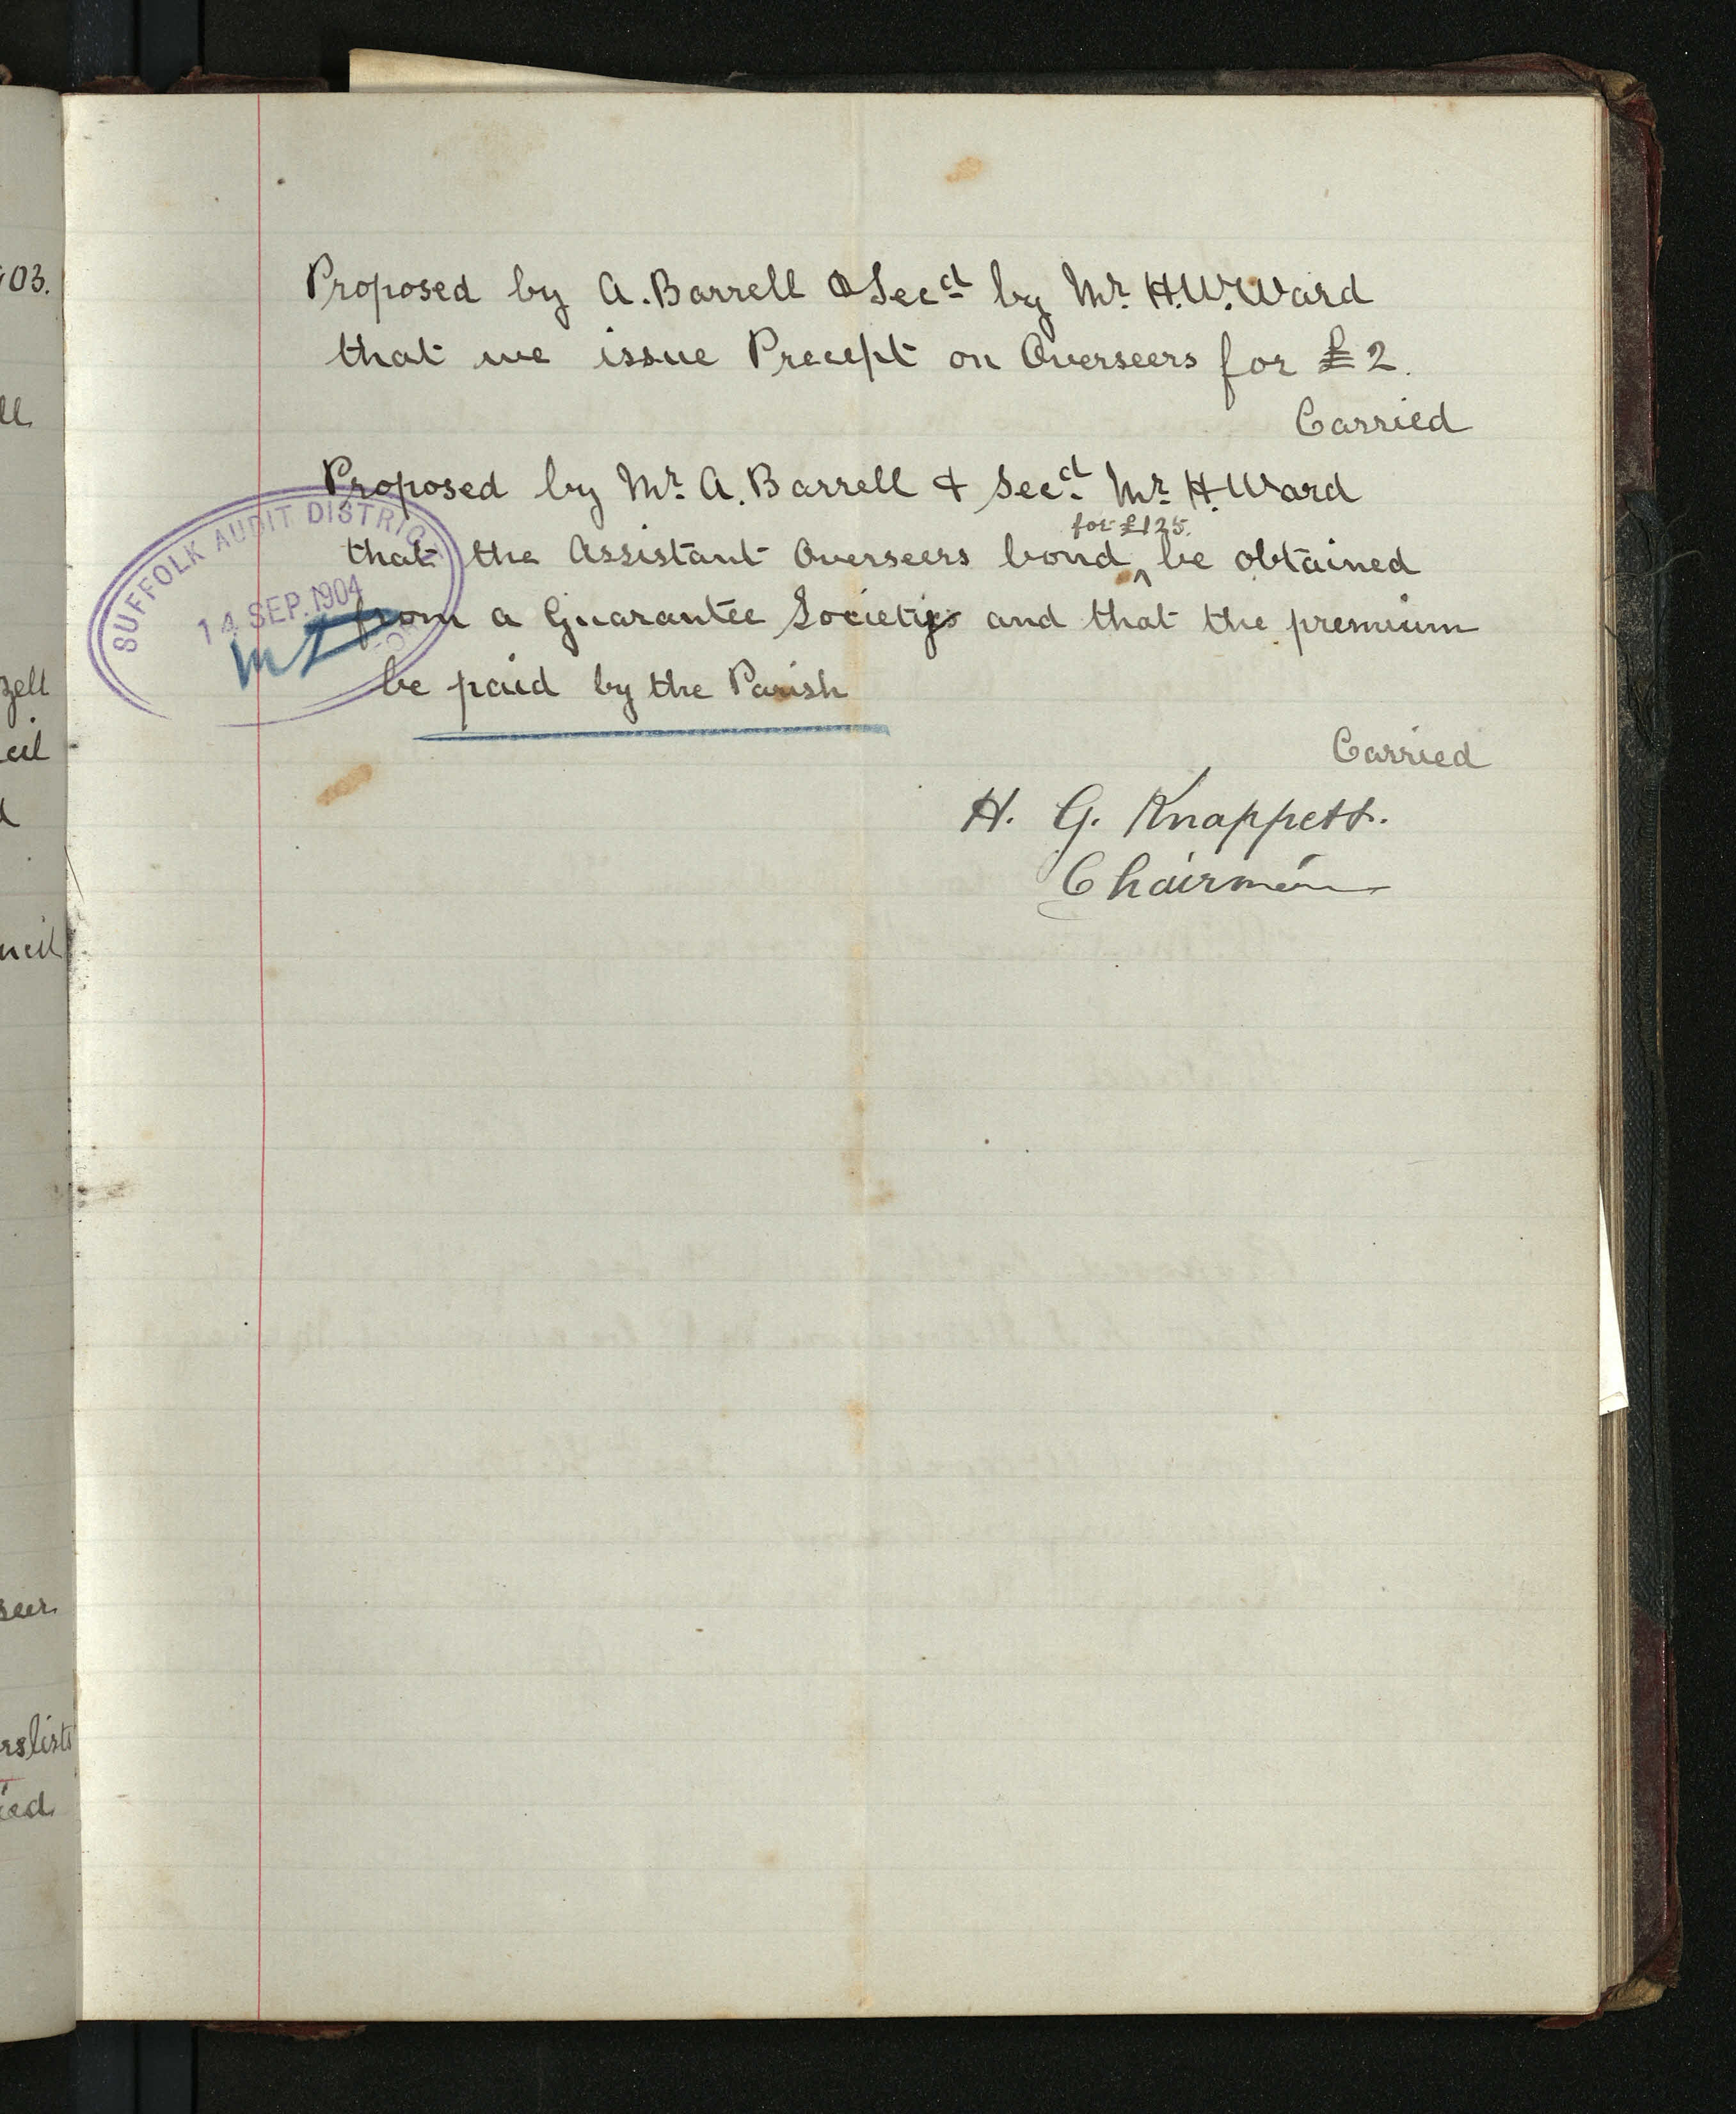 Proposed by A. Barrell & Secd by Mr. H.W. Ward
that we issue Precept on Overseers for £2.
Carried
Proposed by Mr. A. Barrell & Secd. Mr. H. Ward
for £125.
that the Assistant Overseers bond ^ be obtained
from a Guarantee Society and that the premium
be paid by the Parish
Carried
H. G. Knappett.
Chairman
SUFFOLK AUDIT DISTRICT
14 SEP. 1904
03.
ll
zell
cil
ncil
seer
rs lists
ied